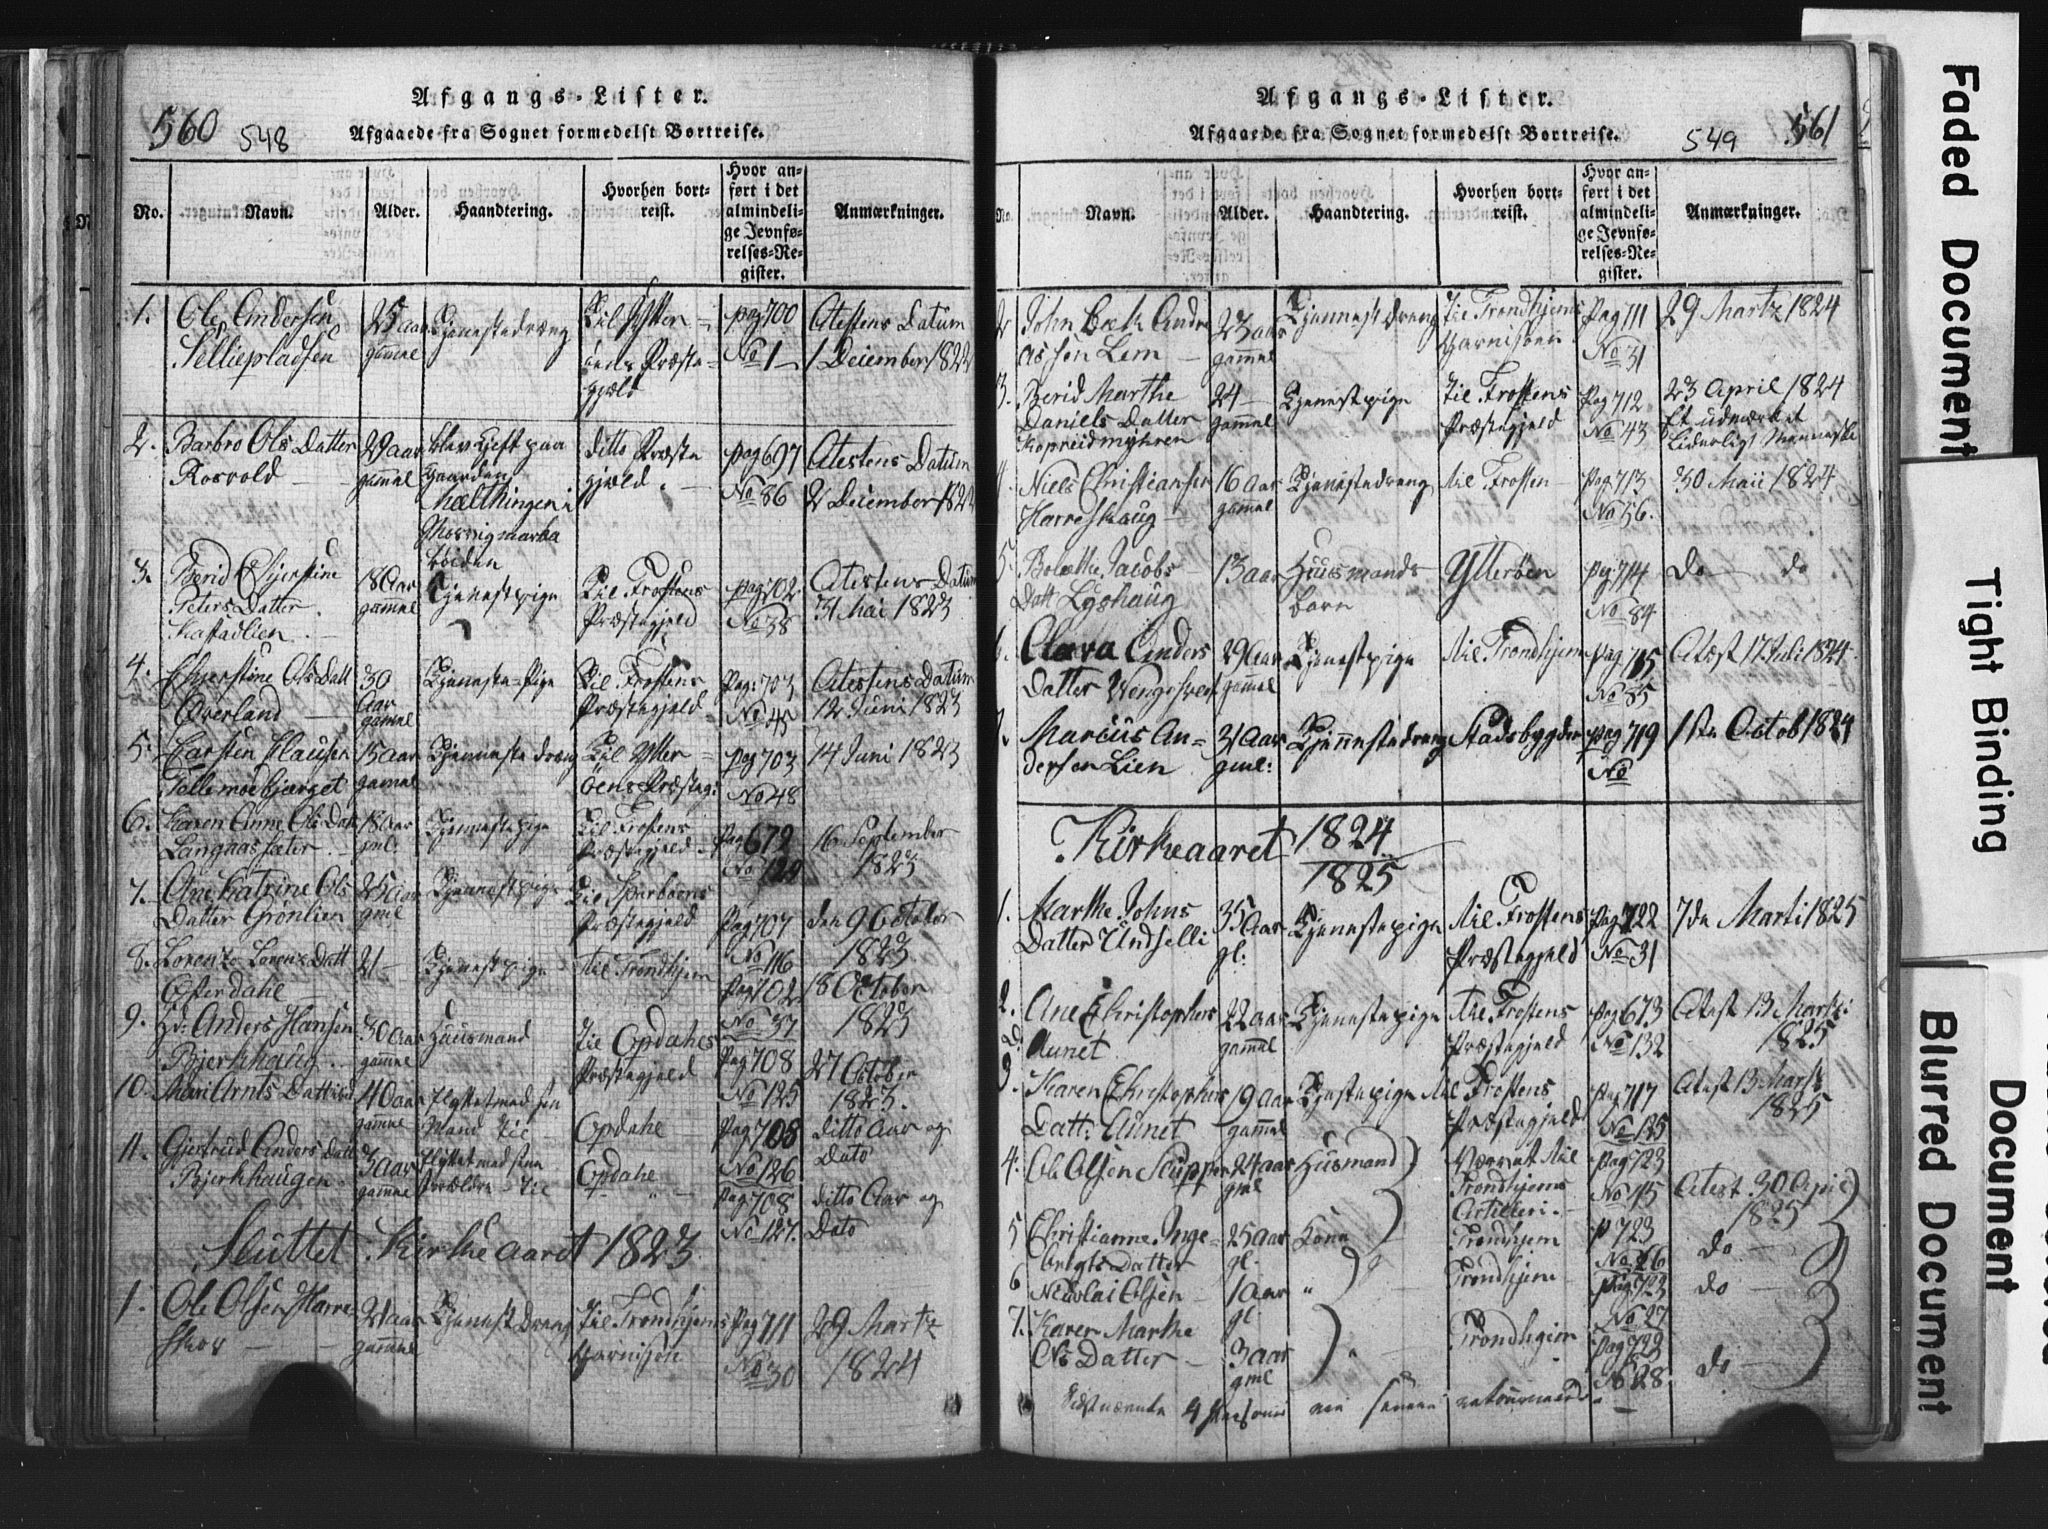 560 548
Afgangs-Lister.
Afgaaede fra Sognet formedelst Bortreise.
No. Navn. Alder. Haandtering. Hvorhen bortreist. Hvor anført i det almindelige Jevnførelses-Register. Anmærkninger.
1. Ole Andersen 25 aar Tjenestedræng Til Ytter- pag 700 Atestens Datum
Selliepladsen gammel öens Præste- No 1 1 December 1822
gjæld
2. Barbro Ols Datter 29 aar blev Gift paa ditto Præste pag 697 Atestens Datum
Rosvold gammel Gaarden gjæld No 86 2 December 1822
3. Berid Chjerstine 18 Aar Tjenestpige Til Frostens pag 702 Atestens Datum
Peters Datter gammel Præstegjeld No 38 31 Mai 1823
4. Chjerstine Ols Datt 30 Tjeneste-Pige Til Frostens Pag: 703 Atestens Datum
Overland Aar gammel Præstegjeld No 45 12 Juni 1823
5. Karsten Clausen 15 Aar Tjenneste dræng Til Ytter- Pag 703 14 Juni 1823
gammel öens Præsteg: No 48
6. Karen Anne Ols Datt 18 Aar Tjennestepige Til Frostens Pag 679 16 September
Langaassæter gml: Præstegjeld No 129 1823
7. Ane Catrine Ols 25 Aar Tjennestpige Til Sparboens Pag 707 den 9 October
Datter Grönlien gml Præstegjeld No 116 1823
8. Lorentze Lorentz Datt 21 Tjenestpige til Trondhjem Pag 702 18 October
Osterdahl No 37 1823
9. Anders Hansen 30 Aar Huusmand til Opdahls Pag 708 27 October
Bjerkhaug gammel Præstegjeld No 125 1823.
10. Mari Arnts Datter 40 aar flyttet med sin Opdahl Pag 708 ditto Aar og
gamle Mand til No 126 Dato
11. Gjertrud Anders Datt 3 Aar flyttet med sine Opdahl Pag 708 ditto Aar og
Bjerkhaugen gammel Forældre til No 127. Dato
Sluttet Kirkeaaret 1823
1. Ole Olsen Harre- 21 aar Tjenest Dreng til Trondhjems Pag 711 29 Martz
skov gammel Garnison No 30 1824
549 561
Afgangs-Lister.
Afgaaede fra Sognet formedelst Bortreise.
No. Navn. Alder. Haandtering. Hvorhen bortreist. Hvor anført i det almindelige Jevnførelses-Register. Anmærkninger.
2 John Beck Andre 23 aar Tjennest dreng til Trondhjems Pag 711 29 Martz 1824
assen Lem gammel Garnisonn No 31
3. Berid Marthe 24 Tjenestpige til Frostens Pag 712 23 April 1824
Daniels Datter gammel Præstegjeld No 43 Et udmærket
Kopreidmyhren Liderligt Menneske
4 Niels Christiansen 16 aar Tjenestedreng til Frosten Pag 713 30 Maii 1824
Harreskaug gammel No 56.
5. Bolethe Jacobs 13 aar Huusmands Ytteröen Pag 714 do do
Datt Lyshaug barn No 84
6. Clara Anders 29 Aar Tjenestpige til Trondhjem Pag 715 Atæst 17 Juli 1824
Datter gammel No 85
7. Marcus An- 21 Aar Tjennestedreng Stadsbygden pag 719 1ste Octob 1824
dersen Lien gml: No
Kirkeaaret 1824
1825
1. Marthe Johns 35 Aar Tjennestepige til Frostens Pag 722 7de Marti 1825
Datter Undselli gl: Præstegjeld No 31
2. Ane Christophers 22 aar Tjennestepige til Frostens pag 673 Atest 13 Marts:
D: Aunet gammel Præstegjeld No 132 1825
3. Karen Christophers 19 aar Tjenstepige til Frostens Pag 717 Atest 13 Marts
Datt: Aunet gammel Præstegjeld No 125 1825
4. Ole Olsen 24 aar Husmand Trondhjems Pag 723 Atest 30 April
gml Artilleri No 45 1825
5 Christianne Inge- 25 aar Kone Trondhjem P 723 do
brigts Datter gl. No 26
6 Nicolai Olsen 1 Aar " Trondhjem Pag 723 do
gl No 27
7. Karen Marthe 3 aar " Trondhjem Pag 723 do
Ols Datter gml No 28.
Sidstnævnte 4 Personer
Faded Document
Tight Binding
Blurred Document
Document